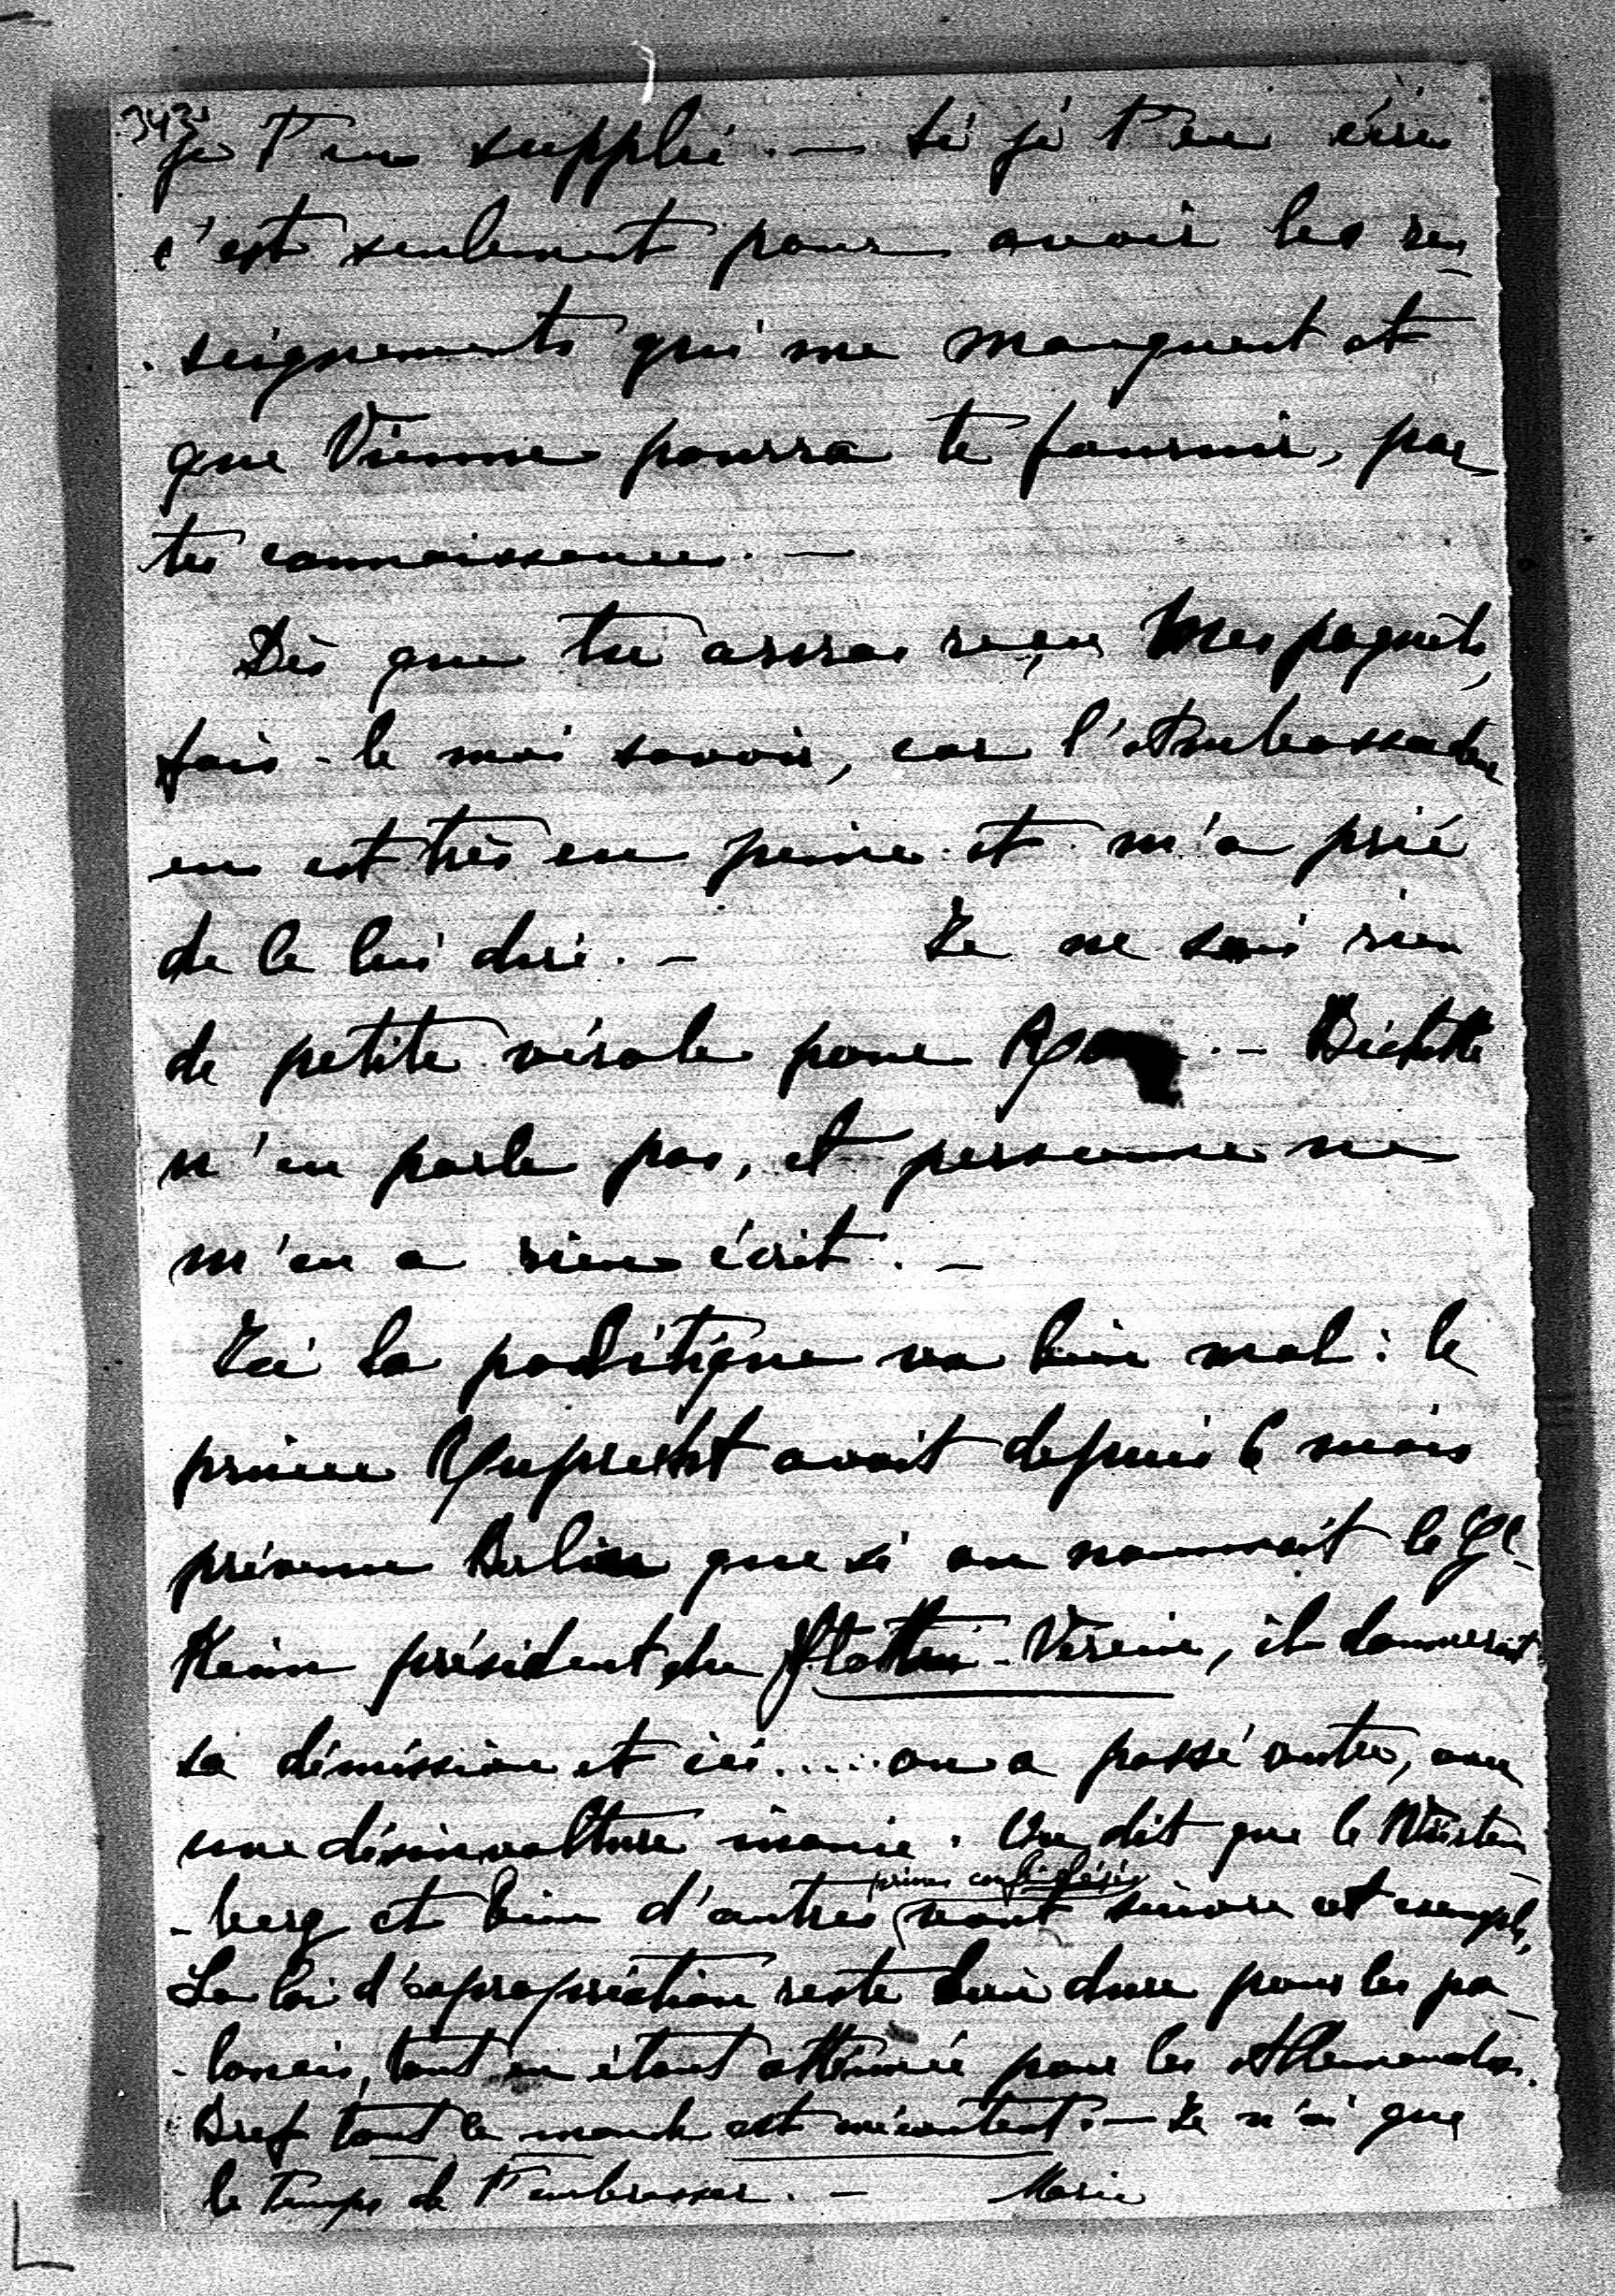 343
je t'en supplie. — Si je t'en écris
c'est seulement pour avoir les ren-
-seignements qui me manquent et
que Vienne pourra te fournir, par
tes connaissances. —
Dès que tu auras reçu mes paquets,
fais-le moi savoir, car l'Ambassadeur
en est très en peine et m'a prié
de le lui dire. — Je ne sais rien
de petite vérole pour — Bichette
n'en parle pas, et personne ne
m'en a rien écrit. —
Ici la politique va bien mal : le
prince Rupreht avait depuis 6 mois
prévenu Berlin que si on nommait le Gl
Keim président du Flotten-Verein, il donnerait
sa démission et ici.... on a passé outre, avec
une désinvolture inouïe. On dit que le Würtem-
-berg et bien d'autres princes confédérés vont suivre cet exemple,
La loi d'expropriation reste bien dure pour les po-
-lonais, tout en étant atténuée pour les Allemands.
Bref tout le monde est mécontent. — Je n'ai que
le temps de t'embrasser. — Marie